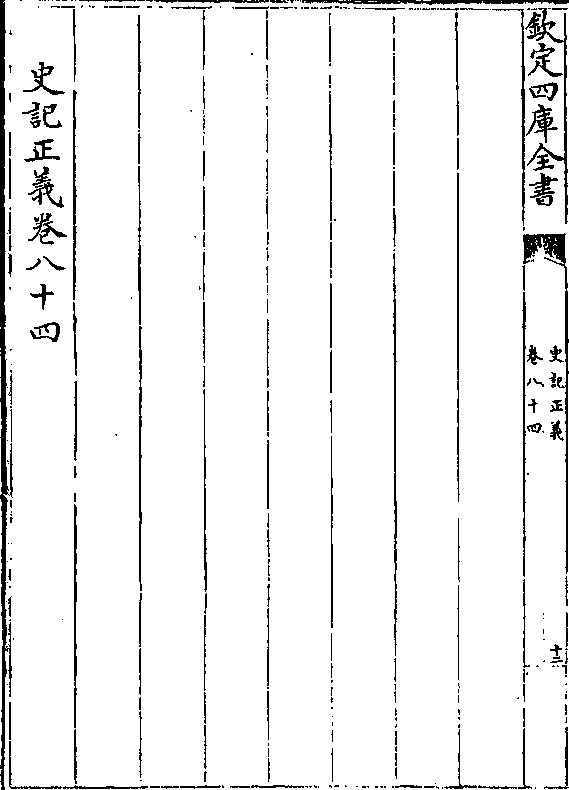 欽定四庫全書
史記正義
卷八十四
十二
史記正義卷八十四